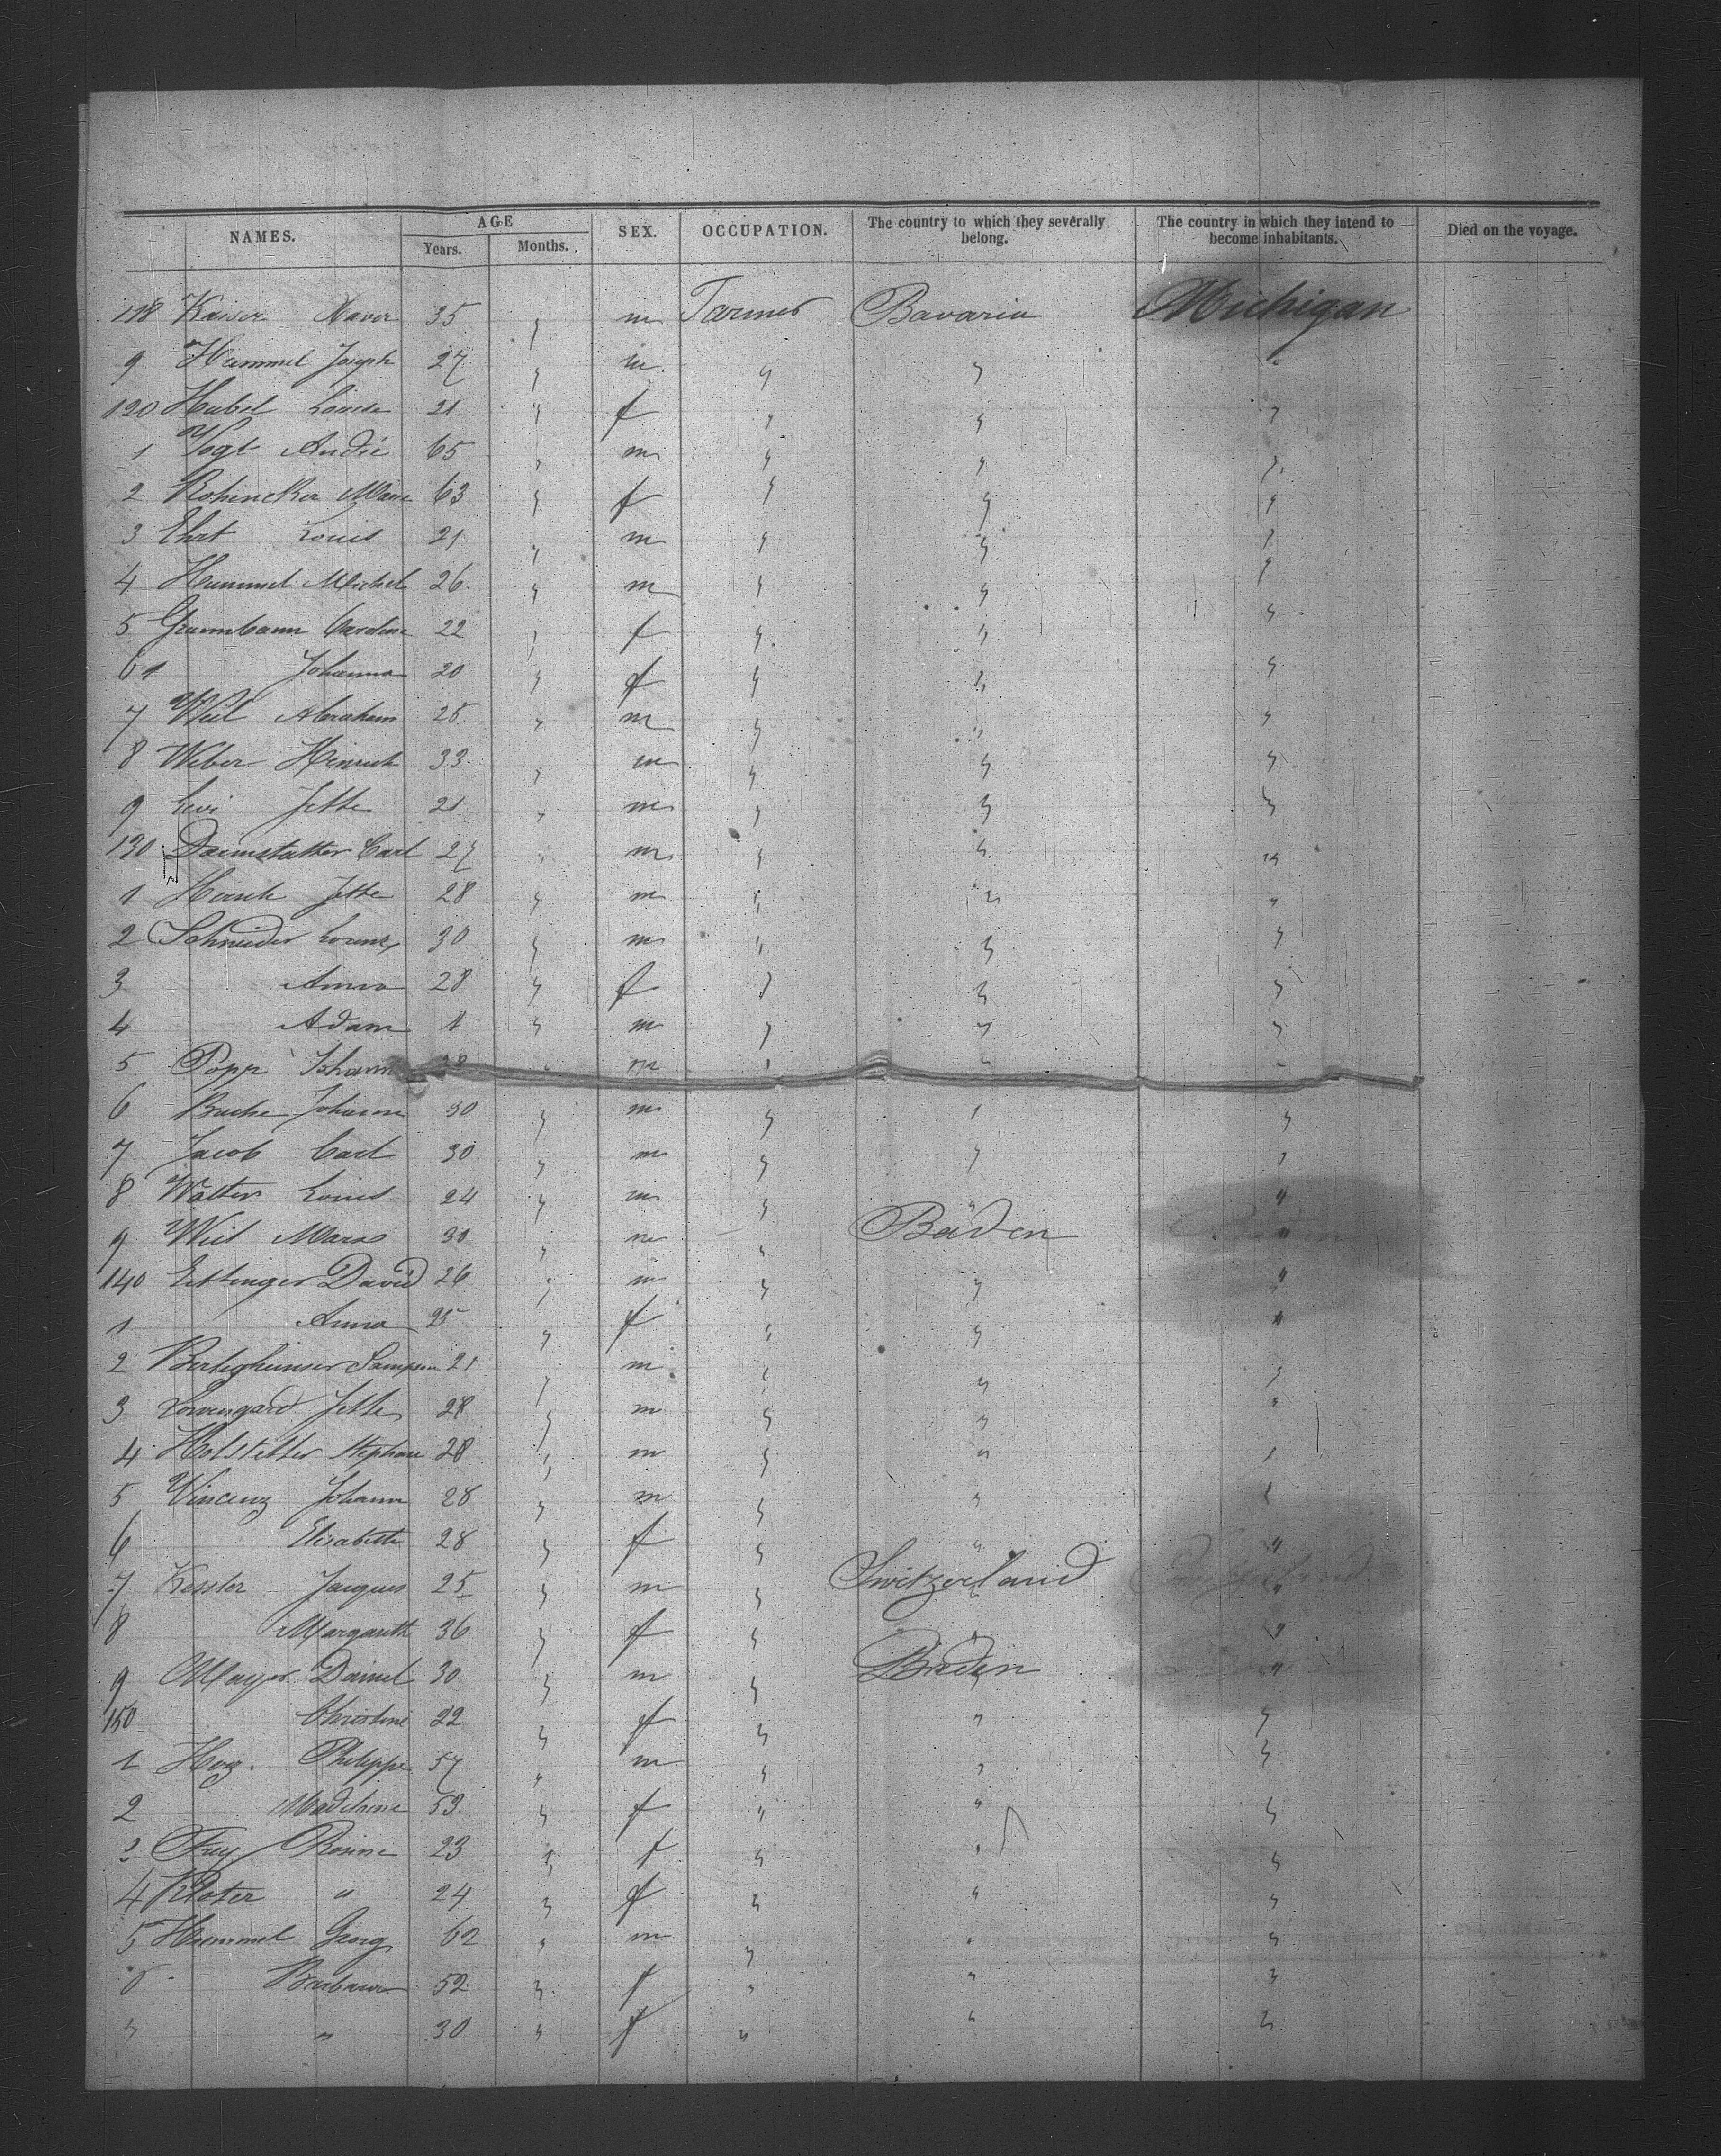 NAMES. AGE SEX. OCCUPATION. The country to which they severally belong. The country in which they intend to become inhabitants. Died on the voyage.
Years. Months.
118 Kaiser Xaver 35 " m Farmer Bavaria Michigan
9 Hummel Joseph 27 " m " " "
120 Hubel Louise 21 " f " " "
1 Vogt André 65 " m " " "
2 Marie 63 " f " " "
3 Louis 21 " m " " "
4 Hummel Michel 26 " m " " "
5 Caroline 22 " f " " "
6 " Johanna 20 " f " " "
7 Weil Abraham 25 " m " " "
8 Weber Heinrich 33 " m " " "
9 Levi Jette 21 " m " " "
130 Carl 27 " m " " "
1 Hirsch Jette 28 " m " " "
2 Schneider Lorenz 30 " m " " "
3 Anna 28 " f " " "
4 Adam 1 " m " " "
5 Popp Johann 28 " m " " "
6 Johann 30 " m " " "
7 Jacob Carl 30 " m " " "
8 Walter Louis 24 " m " " "
9 Weil Marx 30 " m " Baden "
140 Ettinger David 26 " m " " "
1 Anna 25 " f " " "
2 Sampson 21 " m " " "
3 Löwengard Jette 28 " m " " "
4 Hofstetter Stephan 28 " m " " "
5 Vincenz Johann 28 " m " " "
6 Elisabeth 28 " f " " "
7 Kessler Jacques 25 " m " Switzerland "
8 Margareth 36 " f " " "
9 Mayer Daniel 30 " m " Baden "
150 Christine 22 " f " " "
1 Philippe 57 " m " " "
2 53 " f " " "
3 Frey Rosine 23 " f " " "
4 Kloter " 24 " f " " "
5 Hummel Georg 62 " m " " "
6 Barbara 52 " f " " "
7 " 30 " f " " "